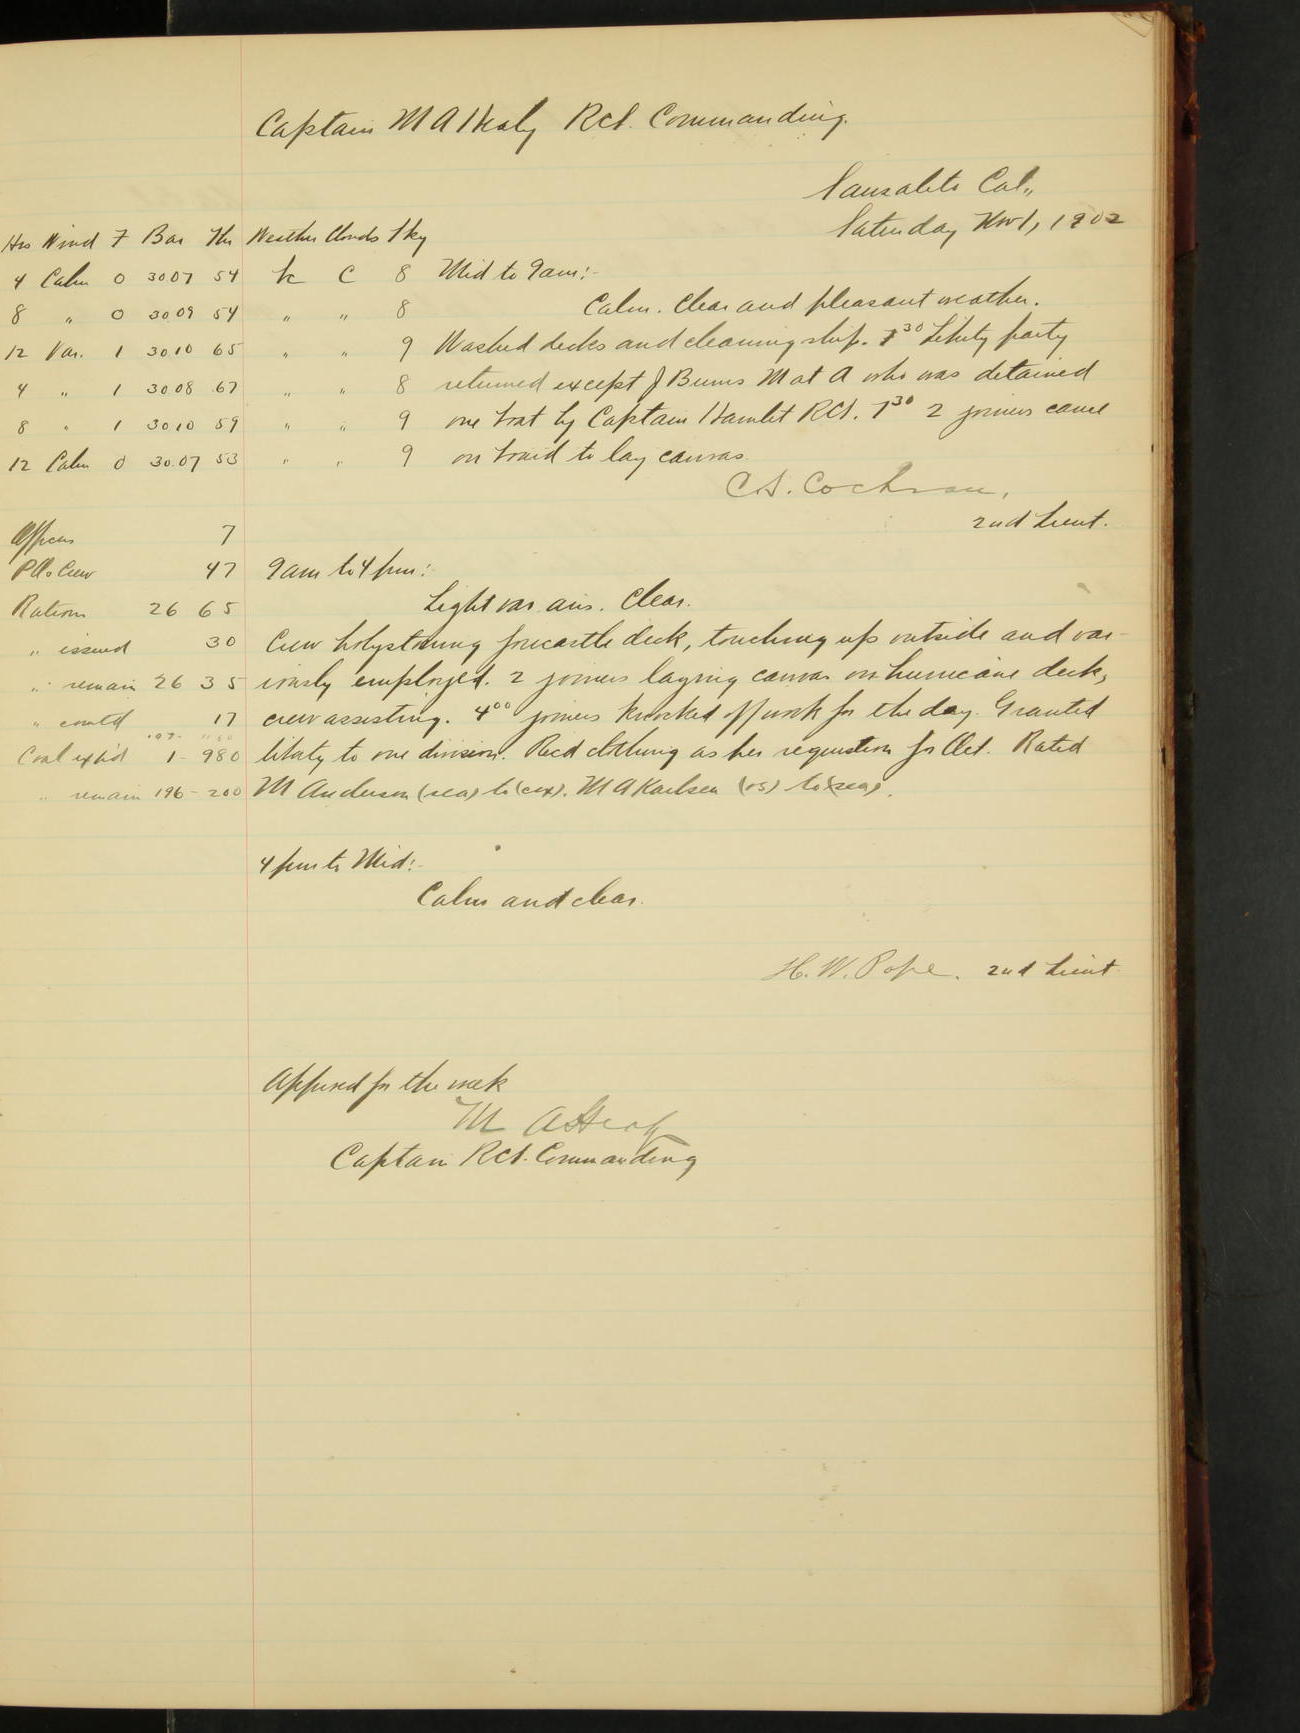 Captain M A Healy RCS. Commanding.
Sausalito Cal.,
Saturday Nov 1, 1902
Hrs Wind F Bar Thr Weather Clouds Sky
4 Calm 0 3007 54 bc C 8 Mid to 9am:-
8 " 0 3009 54 " " 8 Calm. Clear and pleasant weather.
12 Var. 1 3010 65 " " 9 Washed decks and cleaning ship. 7 30 Liberty party
4 " 1 3008 67 " " 8 returned except J Burns M at A who was detained
8 " 1 3010 59 " " 9 one boat by Captain Hamlet RCS. 7 30 2 joiners came
12 Calm 0 30.07 53 " " 9 on board to lay canvas.
C.S. Cochran,
2nd Lieut.
Officers 7
P.O. & Crew 47 9am to 4 pm:-
Rations 26 65 Light var airs. Clear.
" issued 30 Crew holystoning forecastle deck, touching up outside and var-
" remain 26 35 iously employed. 2 joiners laying canvas on hurricane deck,
" com'td 17 crew assisting. 4 00 joiners knocked off work for the day. Granted
Coal exp'd 1 - 980 liberty to one division. Rec'd clothing as per requisition for Oct. Rated
" remain 196 - 200 M Anderson (sea) to (cox). M A Karlsen (os) to (sea).
4 pm to Mid:-
Calm and clear.
H. W. Pope. 2nd Lieut
Approved for the week
M A Healy
Captain RCS. Commanding